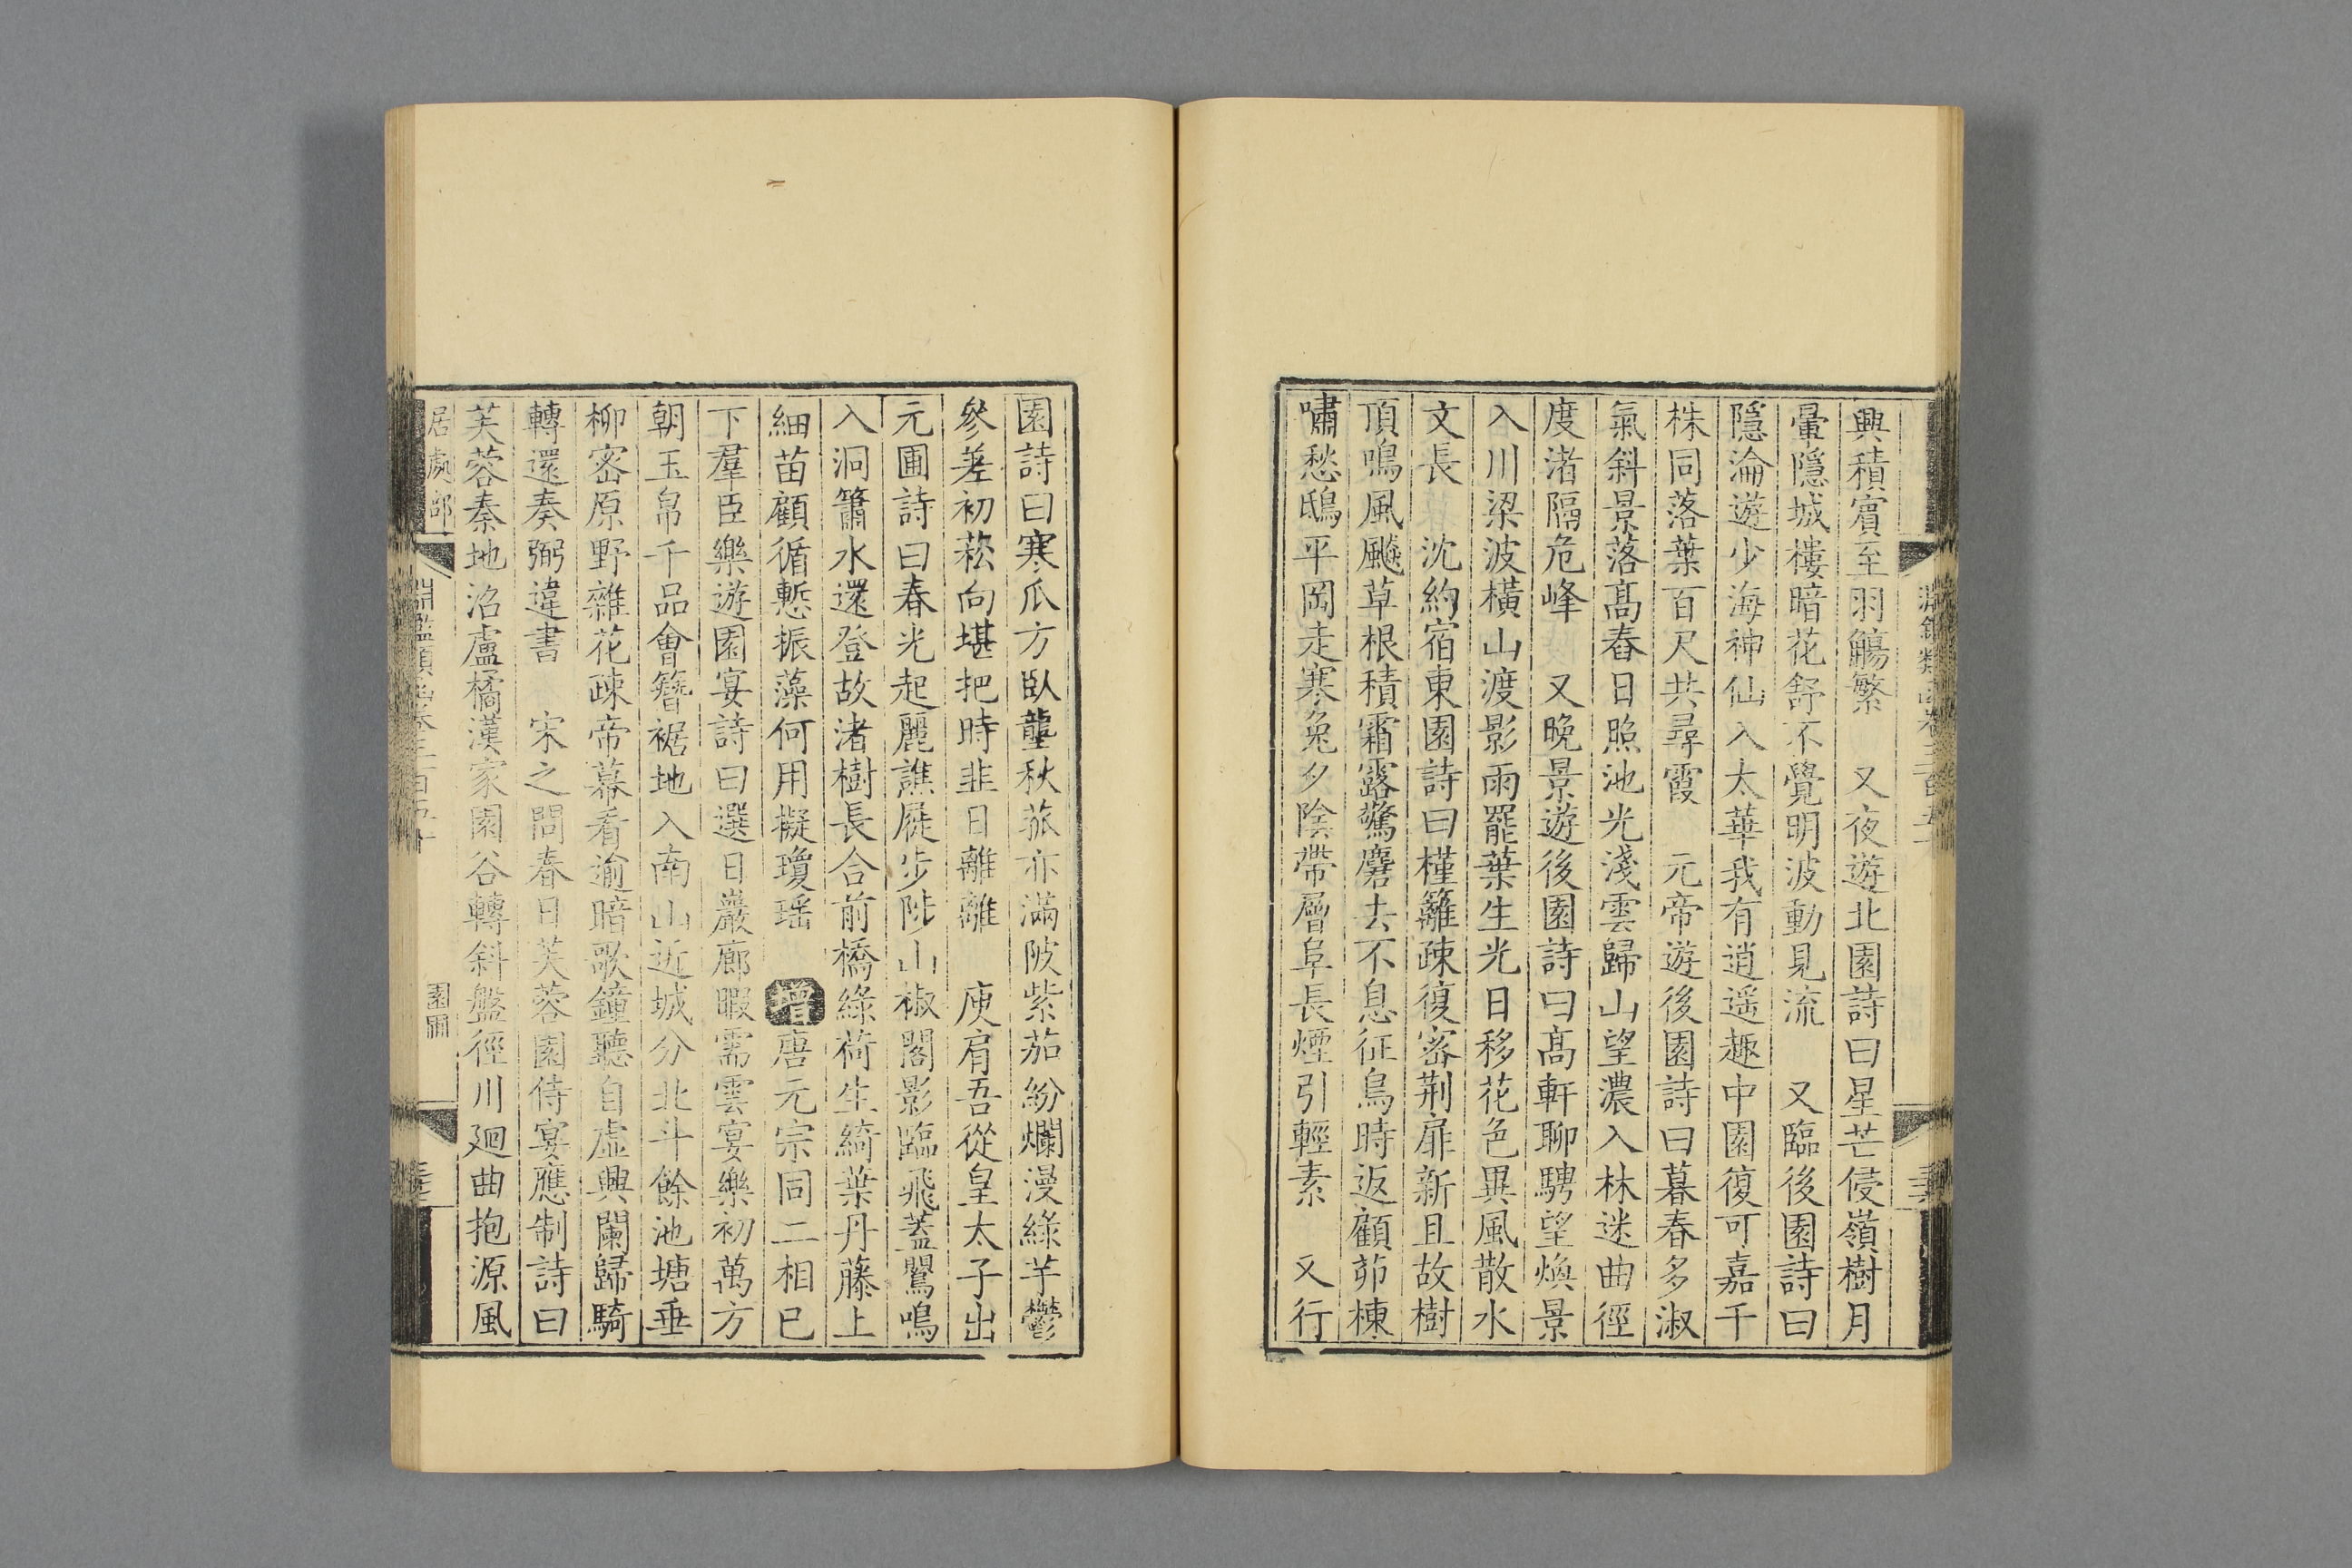 興積賓至羽觴繁　又夜遊北園詩曰星芒侵嶺樹月
暈隱城樓暗花舒不覺明波動見流　又臨後園詩曰
隱淪遊少海神仙入太華我有逍遥趣中園復可嘉千
株同落葉百尺共尋霞　元帝遊後園詩曰暮春多淑
氣斜景落髙舂日照池光淺雲歸山望濃入林迷曲徑
度渚隔危峰　又晚景遊後園詩曰髙軒聊騁望煥景
入川梁波橫山渡影雨罷葉生光日移花色異風散水
文長　沈約宿東園詩曰槿籬疎復密荆扉新且故樹
頂鳴風飈草根積霜露驚麏去不息征鳥時返顧茆棟
嘯愁鴟平岡走寒兔夕陰帶層阜長煙引輕素　又行
園詩曰寒瓜方臥壟秋菰亦滿陂紫茄紛爛漫綠芋鬱
參差初菘向堪把時韭日離離　庾肩吾從皇太子出
元圃詩曰春光起麗譙屣步陟山椒閣影臨飛蓋鸎鳴
入洞簫水還登故渚樹長合前橋綠荷生綺葉丹藤上
細苗顧循慙振藻何用擬瓊瑶　增唐元宗同二相已
下羣臣樂遊園宴詩曰選日巖廊暇需雲宴樂初萬方
朝玉帛千品會簪裾地入南山近城分北斗餘池塘垂
柳密原野雜花疎帟幕看逾暗歌鐘聽自虛興闌歸騎
轉還奏弼違書　宋之問春日芙蓉園侍宴應制詩曰
芙蓉秦地沼盧橘漢家園谷轉斜盤徑川廻曲抱源風
居處部　園圃